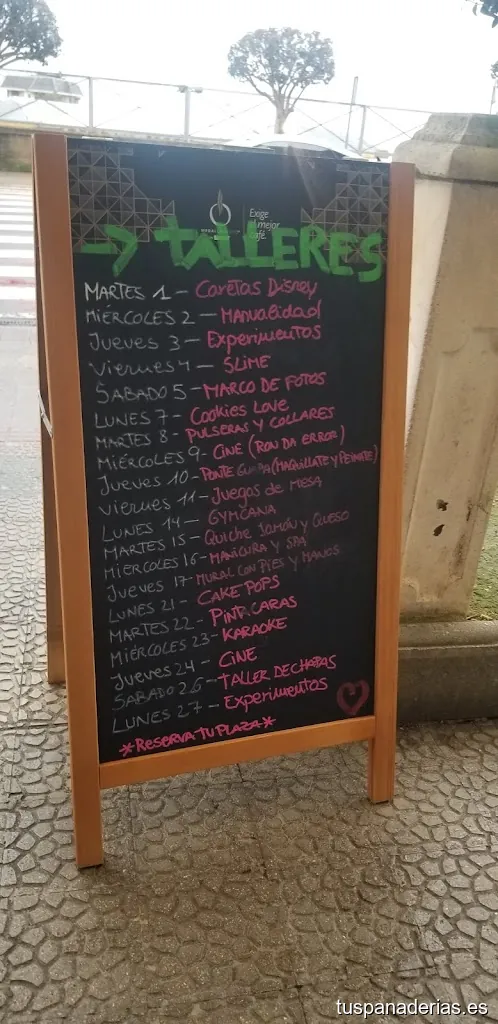 Exige
el mejor
café.
→ TALLERES
MARTES 1 - Caretas Disney
MIÉRCOLES 2 - MANUALIDAD
JUEVES 3 - Experimentos
Viernes 4 - SLIME
SABADO 5 - MARCO DE FOTOS
LUNES 7 - Cookies Love
MARTES 8 - PULSERAS Y COLLARES
MIÉRCOLES 9 - CINE (RON DA ERROR)
Jueves 10 - PONTE GUAPA (MAQUILLATE Y PEINATE)
Viernes 11 - Juegos de MESA
LUNES 14 - GYMCANA
MARTES 15 - QUICHE JAMÓN Y QUESO
MIÉRCOLES 16 - MANICURA Y SPA
Jueves 17 - MURAL CON PIES Y MANOS
LUNES 21 - CAKE POPS
MARTES 22 - PINTA CARAS
MIÉRCOLES 23 - KARAOKE
Jueves 24 - CINE
SABADO 26 - TALLER DE CHAPAS
LUNES 27 - Experimentos
*RESERVA TU PLAZA*
tuspanaderias.es